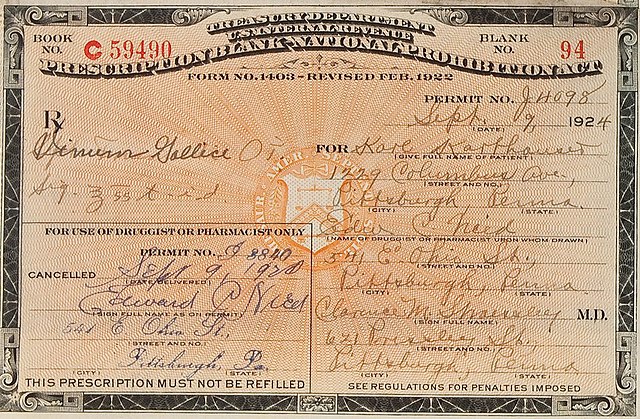 TREASURY DEPARTMENT
U.S. INTERNAL REVENUE
PRESCRIPTION BLANK-NATIONAL PROHIBITION ACT
BOOK NO. C 59490
BLANK NO. 94
FORM NO. 1403-REVISED FEB. 1922
PERMIT NO. J 4098
Sept. 9, 1924
(DATE)
Rx
Vinum Gallice
Sig. ss t i d
FOR Karl Karthauser
(GIVE FULL NAME OF PATIENT)
1779 Columbus Ave.,
(STREET AND NO.)
Pittsburgh, Penna.
(CITY) (STATE)
Edw C Nied
(NAME OF DRUGGIST OR PHARMACIST UPON WHOM DRAWN)
541 E. Ohio St.,
(STREET AND NO.)
Pittsburgh, Penna
(CITY) (STATE)
Clarence M. M.D.
(SIGN FULL NAME)
621 St.
(STREET AND NO.)
Pittsburgh, Penna
(CITY) (STATE)
SEE REGULATIONS FOR PENALTIES IMPOSED
FOR USE OF DRUGGIST OR PHARMACIST ONLY
PERMIT NO. J 8840
CANCELLED Sept 9, 1924
(DATE DELIVERED)
Edward C Nied
(SIGN FULL NAME AS ON PERMIT)
541 E Ohio St.,
(STREET AND NO.)
Pittsburgh, Pa.
(CITY) (STATE)
THIS PRESCRIPTION MUST NOT BE REFILLED